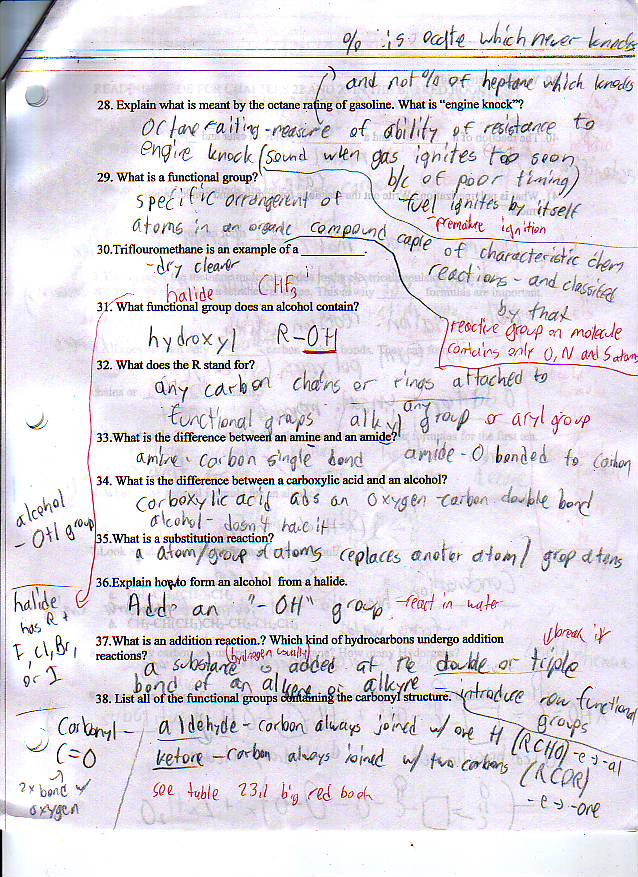 % is octte which never knocks
and not % of heptane which knocks
28. Explain what is meant by the octane rating of gasoline. What is "engine knock"?
Octane raiting-measure of ability of resistance to
engine knock (sound when gas ignites too soon
b/c of poor timing)
29. What is a functional group?
fuel ignites by itself
premature ignition
specific arrangement of
atoms in an organic compound caple of characteristic chem
reactions - and classified
by that
30.Triflouromethane is an example of a ____________.
-dry cleaner
halide CHF3
reactive group on molecule
contains only O, N and S atoms
31. What functional group does an alcohol contain?
hydroxyl R-OH
32. What does the R stand for?
any carbon chains or rings attached to
functional groups alkyl any group or aryl group
33.What is the difference between an amine and an amide?
amine - carbon single bond amide - O bonded to carbon
34. What is the difference between a carboxylic acid and an alcohol?
Carboxylic acid ads an oxygen-carbon double bond
alcohol - doesn't have it
alcohol
- OH group
35.What is a substitution reaction?
a atom/group of atoms replaces anoter atom/ grop atoms
36.Explain how to form an alcohol from a halide.
Add an "-OH" group -react in water
halide
has R +
F, Cl, Br,
or I
37.What is an addition reaction.? Which kind of hydrocarbons undergo addition
reactions?
(hydrogen usually)
break it
a substance is added at the double or triple
bond of an alkene or alkyne - introduce new functional
groups
38. List all of the functional groups containing the carbonyl structure.
Carbonyl -
C=O
2x bond w/
oxygen
aldehyde - carbon always joined w/ one H (RCHO) -e → -al
ketone - carbon always joined w/ two carbons (RCOR)
-e → -one
see table 23.1 big red book